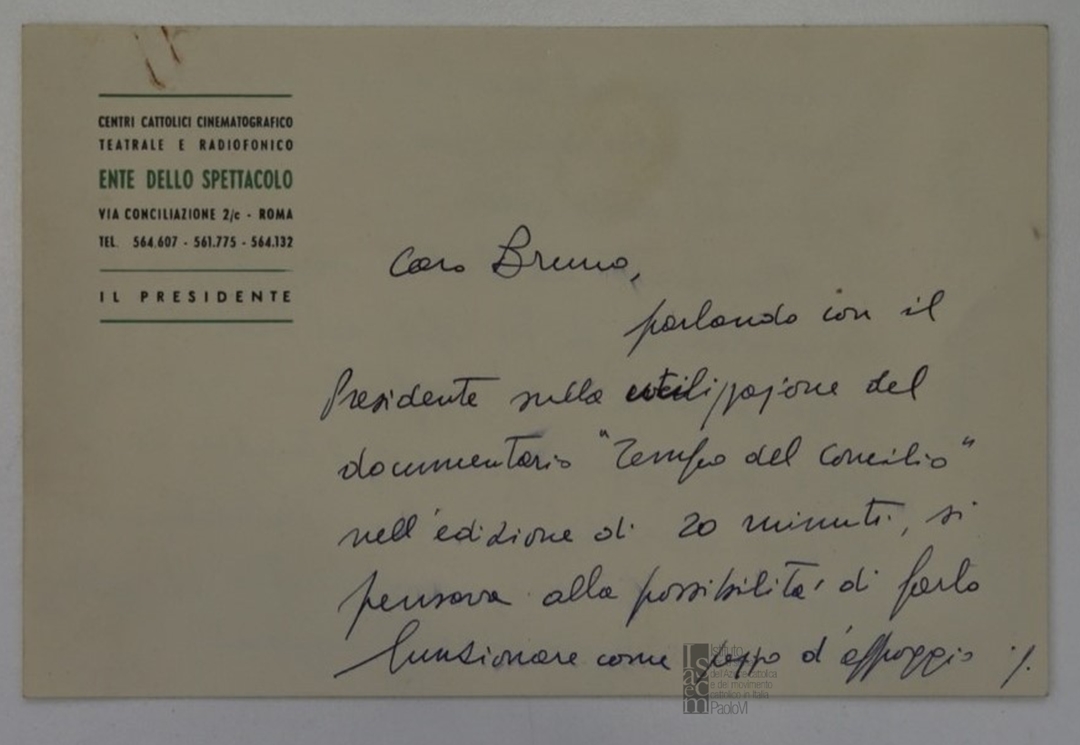 CENTRI CATTOLICI CINEMATOGRAFICO
TEATRALE E RADIOFONICO
ENTE DELLO SPETTACOLO
VIA CONCILIAZIONE 2/c - ROMA
TEL. 564.607 - 561.775 - 564.132
IL PRESIDENTE
Caro Bruno,
parlando con il
Presidente sulla utilizzazione del
documentario "Tempo del Concilio"
nell'edizione di 20 minuti, si
pensava alla possibilità di farlo
funzionare come pezzo d'appoggio ./.
Istituto
dell'Azione cattolica
e del movimento
cattolico in Italia
Paolo VI